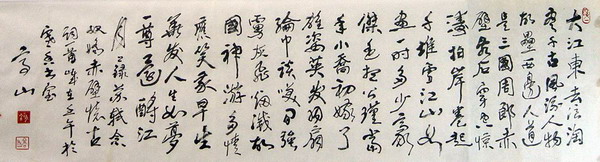 大江東去浪淘
尽千古風流人物
故壘西邊人道
是三國周郎赤
壁乱石穿空惊
濤拍岸卷起
千堆雪江山如
畫一时多少豪
傑遙想公瑾當
年小喬初嫁了
雄姿英发羽扇
綸巾談笑間強
虜灰飛烟滅故
國神游多情
應笑我早生
華发人生如夢
一尊還酹江
月 録苏軾念
奴嬌赤壁懷古
詞一首
高山